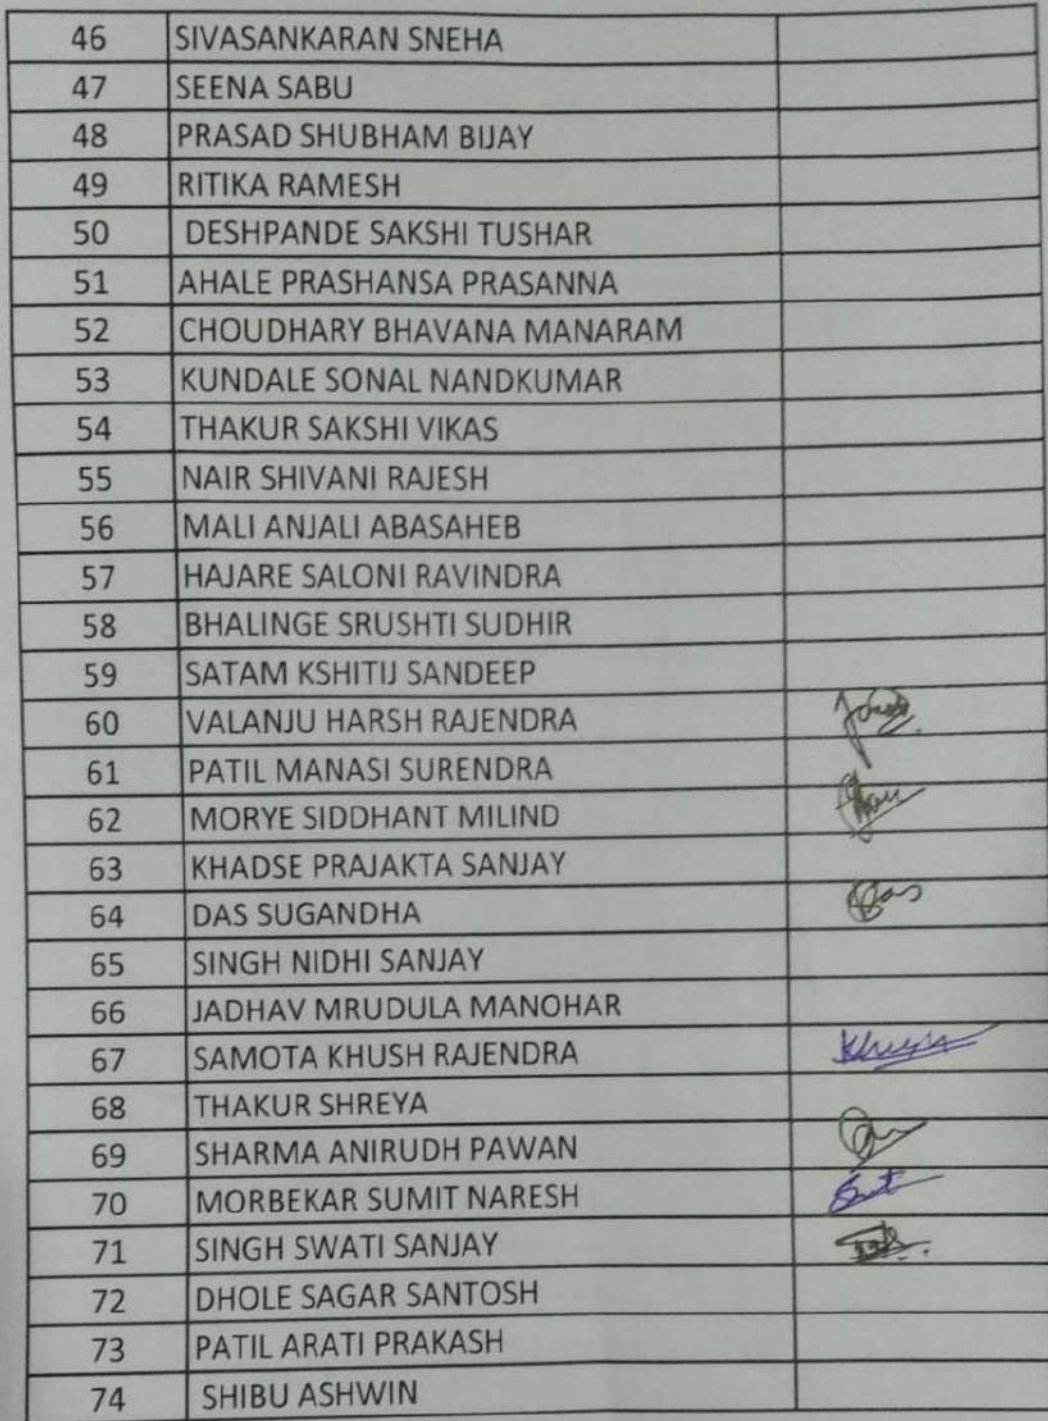 46 SIVASANKARAN SNEHA
47 SEENA SABU
48 PRASAD SHUBHAM BIJAY
49 RITIKA RAMESH
50 DESHPANDE SAKSHI TUSHAR
51 AHALE PRASHANSA PRASANNA
52 CHOUDHARY BHAVANA MANARAM
53 KUNDALE SONAL NANDKUMAR
54 THAKUR SAKSHI VIKAS
55 NAIR SHIVANI RAJESH
56 MALI ANJALI ABASAHEB
57 HAJARE SALONI RAVINDRA
58 BHALINGE SRUSHTI SUDHIR
59 SATAM KSHITIJ SANDEEP
60 VALANJU HARSH RAJENDRA
61 PATIL MANASI SURENDRA
62 MORYE SIDDHANT MILIND
63 KHADSE PRAJAKTA SANJAY
64 DAS SUGANDHA
65 SINGH NIDHI SANJAY
66 JADHAV MRUDULA MANOHAR
67 SAMOTA KHUSH RAJENDRA
68 THAKUR SHREYA
69 SHARMA ANIRUDH PAWAN
70 MORBEKAR SUMIT NARESH
71 SINGH SWATI SANJAY
72 DHOLE SAGAR SANTOSH
73 PATIL ARATI PRAKASH
74 SHIBU ASHWIN